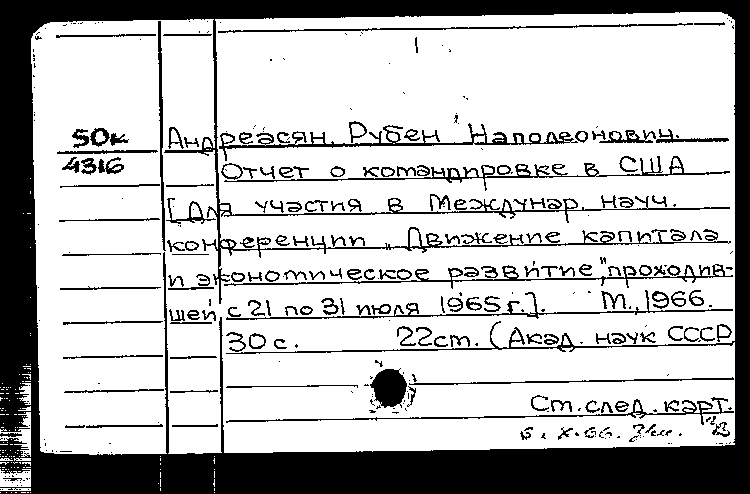 50к Андреасян, Рубен Наполеонович.
4316 Отчет о командировке в США
[Для участия в Междунар. науч.
конференции „Движение капитала
и экономическое развитие", проходив-
шей с 21 по 31 июля 1965 г.]. М., 1966.
30 с. 22 ст. (Акад. наук СССР
См. след. карт.
5.X.66.